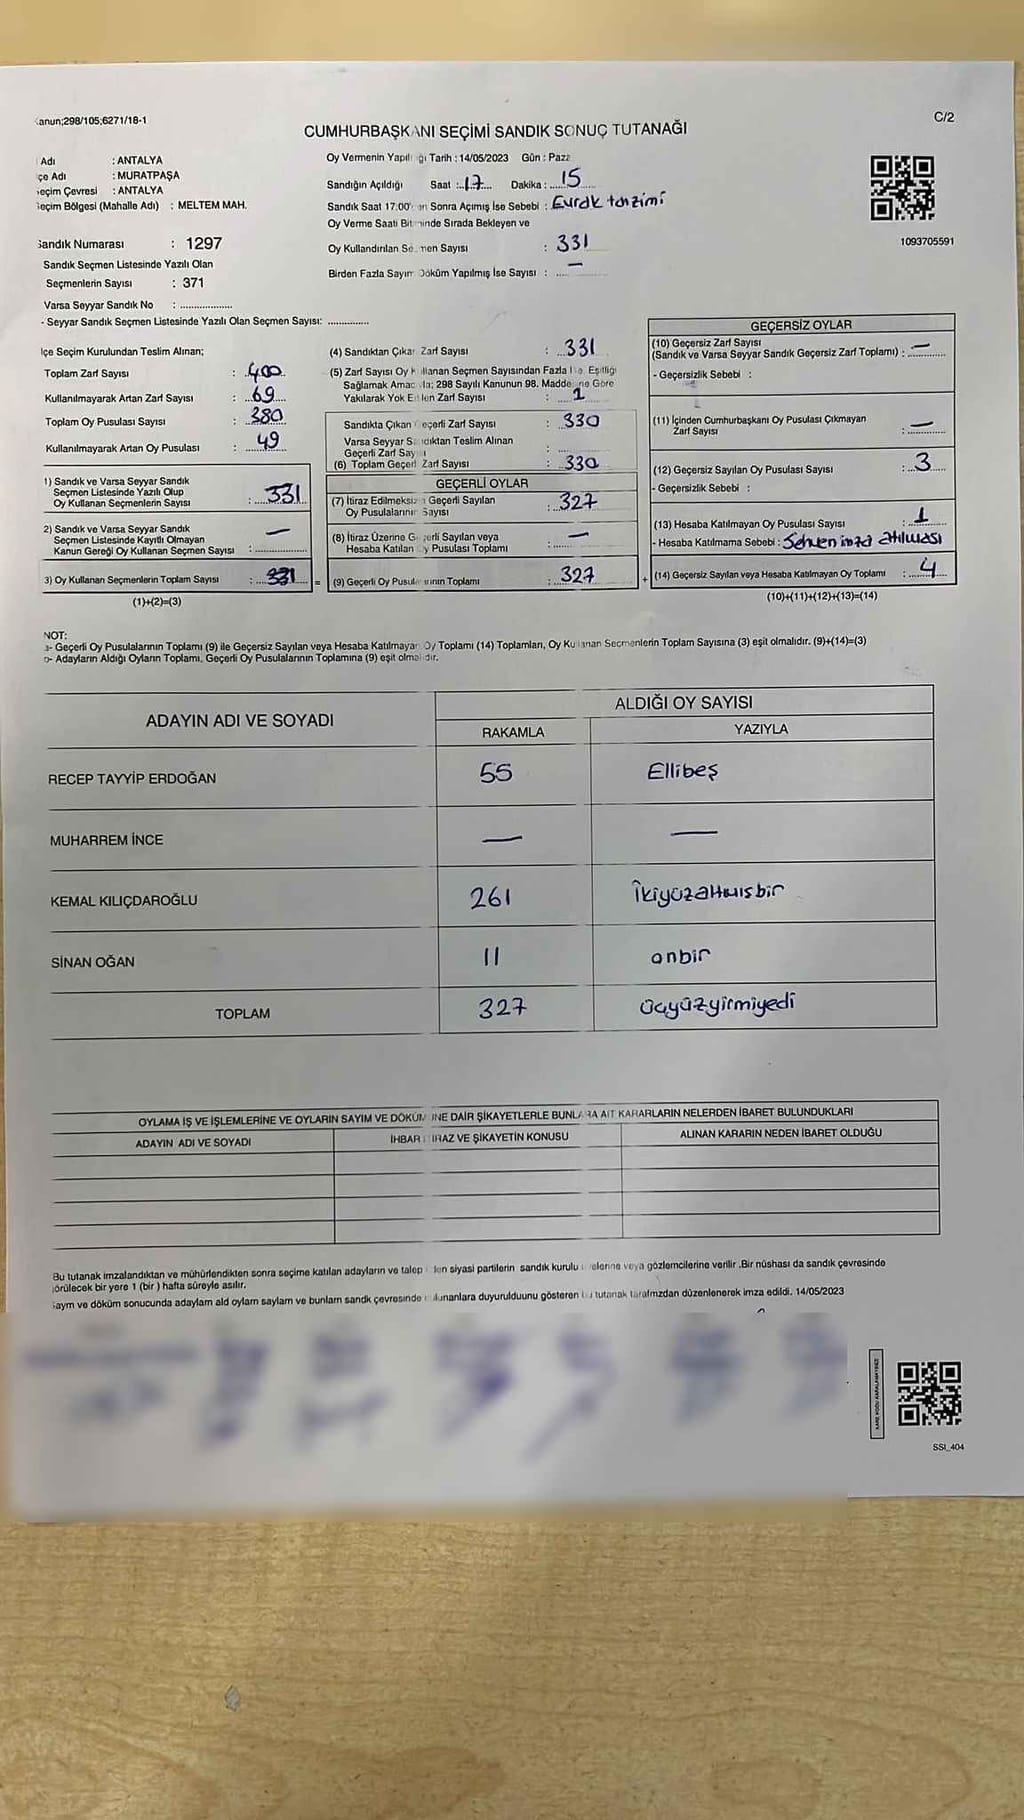 Kanun;298/105;6271/18-1
C/2
CUMHURBAŞKANI SEÇİMİ SANDIK SONUÇ TUTANAĞI
Adı : ANTALYA
çe Adı : MURATPAŞA
eçim Çevresi : ANTALYA
eçim Bölgesi (Mahalle Adı) : MELTEM MAH.
Sandık Numarası : 1297
Sandık Seçmen Listesinde Yazılı Olan
Seçmenlerin Sayısı : 371
Varsa Seyyar Sandık No : ...................
- Seyyar Sandık Seçmen Listesinde Yazılı Olan Seçmen Sayısı: ...............
Oy Vermenin Yapıl ğı Tarih : 14/05/2023 Gün : Paza
Sandığın Açıldığı Saat : 17 Dakika : 15
Sandık Saat 17:00' an Sonra Açımış İse Sebebi : Evrak tanzimi
Oy Verme Saati Bit inde Sırada Bekleyen ve
Oy Kullandırılan Se men Sayısı : 331
Birden Fazla Sayım Döküm Yapılmış İse Sayısı : —
1093705591
lçe Seçim Kurulundan Teslim Alınan;
Toplam Zarf Sayısı : 400
Kullanılmayarak Artan Zarf Sayısı : 69
Toplam Oy Pusulası Sayısı : 380
Kullanılmayarak Artan Oy Pusulası : 49
1) Sandık ve Varsa Seyyar Sandık
Seçmen Listesinde Yazılı Olup
Oy Kullanan Seçmenlerin Sayısı : 331
2) Sandık ve Varsa Seyyar Sandık
Seçmen Listesinde Kayıtlı Olmayan
Kanun Gereği Oy Kullanan Seçmen Sayısı : —
3) Oy Kullanan Seçmenlerin Toplam Sayısı : 331 =
(1)+(2)=(3)
(4) Sandıktan Çıkan Zarf Sayısı : 331
(5) Zarf Sayısı Oy Kullanan Seçmen Sayısından Fazla İse, Eşitliği
Sağlamak Amacıyla; 298 Sayılı Kanunun 98. Maddesine Göre
Yakılarak Yok Edilen Zarf Sayısı :
Sandıkta Çıkan Geçerli Zarf Sayısı : 330
Varsa Seyyar Sandıktan Teslim Alınan
Geçerli Zarf Sayısı :
(6) Toplam Geçerli Zarf Sayısı : 330
GEÇERLİ OYLAR
(7) İtiraz Edilmeksizin Geçerli Sayılan
Oy Pusulalarının Sayısı : 327
(8) İtiraz Üzerine Geçerli Sayılan veya
Hesaba Katılan Oy Pusulası Toplamı : —
(9) Geçerli Oy Pusulalarının Toplamı : 327 +
GEÇERSİZ OYLAR
(10) Geçersiz Zarf Sayısı
(Sandık ve Varsa Seyyar Sandık Geçersiz Zarf Toplamı) : —
- Geçersizlik Sebebi :
(11) İçinden Cumhurbaşkanı Oy Pusulası Çıkmayan
Zarf Sayısı : —
(12) Geçersiz Sayılan Oy Pusulası Sayısı : 3
- Geçersizlik Sebebi :
(13) Hesaba Katılmayan Oy Pusulası Sayısı : 1
- Hesaba Katılmama Sebebi : Sehven imza atılması
(14) Geçersiz Sayılan veya Hesaba Katılmayan Oy Toplamı : 4
(10)+(11)+(12)+(13)=(14)
NOT:
a- Geçerli Oy Pusulalarının Toplamı (9) ile Geçersiz Sayılan veya Hesaba Katılmayan Oy Toplamı (14) Toplamları, Oy Kullanan Seçmenlerin Toplam Sayısına (3) eşit olmalıdır. (9)+(14)=(3)
b- Adayların Aldığı Oyların Toplamı, Geçerli Oy Pusulalarının Toplamına (9) eşit olmalıdır.
ADAYIN ADI VE SOYADI
ALDIĞI OY SAYISI
RAKAMLA YAZIYLA
RECEP TAYYİP ERDOĞAN 55 Ellibeş
MUHARREM İNCE — —
KEMAL KILIÇDAROĞLU 261 İkiyüzaltmışbir
SİNAN OĞAN 11 onbir
TOPLAM 327 üçyüzyirmiyedi
OYLAMA İŞ VE İŞLEMLERİNE VE OYLARIN SAYIM VE DÖKÜMÜNE DAİR ŞİKAYETLERLE BUNLARA AİT KARARLARIN NELERDEN İBARET BULUNDUKLARI
ADAYIN ADI VE SOYADI İHBAR İTİRAZ VE ŞİKAYETİN KONUSU ALINAN KARARIN NEDEN İBARET OLDUĞU
Bu tutanak imzalandıktan ve mühürlendikten sonra seçime katılan adayların ve talep eden siyasi partilerin sandık kurulu üyelerine veya gözlemcilerine verilir .Bir nüshası da sandık çevresinde
görülecek bir yere 1 (bir ) hafta süreyle asılır.
Saym ve döküm sonucunda adaylam ald oylam saylam ve bunlam sandk çevresinde bulunanlara duyurulduunu gösteren bu tutanak tarafmzdan düzenlenerek imza edildi. 14/05/2023
SSI_404